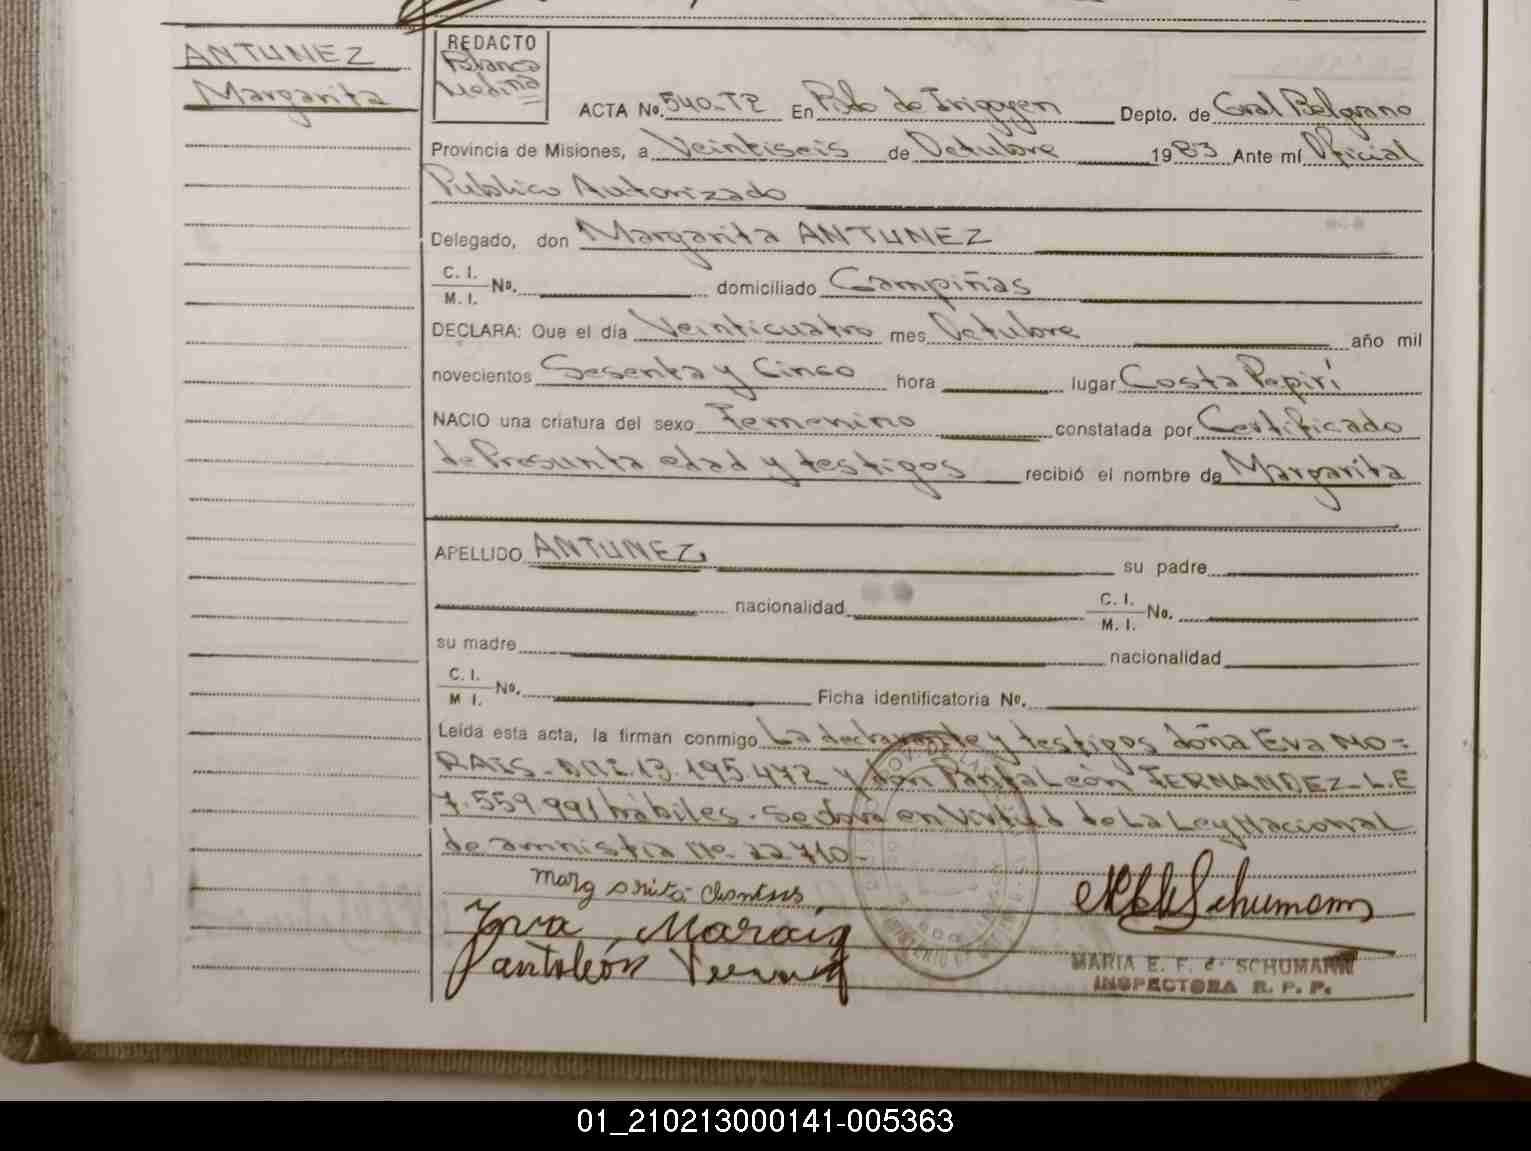 ANTUNEZ
Margarita
REDACTO
Blanca
Medina
ACTA No. 540-T2 En Bdo de Irigoyen Depto. de Gral Belgrano
Provincia de Misiones, a Veintiseis de Octubre 1983 Ante mí Oficial
Publico Autorizado
Delegado, don Margarita ANTUNEZ
C. I.
M. I. No. domiciliado Campiñas
DECLARA: Que el día Veinticuatro mes Octubre año mil
novecientos Sesenta y Cinco hora lugar Costa Pepirí
NACIO una criatura del sexo Femenino constatada por Certificado
de Presunta edad y testigos recibió el nombre de Margarita
APELLIDO ANTUNEZ. su padre
nacionalidad C. I.
M. I. No.
su madre nacionalidad
C. I.
M I. No. Ficha identificatoria No.
Leída esta acta, la firman conmigo La declarante y testigos doña Eva MO=
RAIS- DNI 13.195.472 y don PantaLeón FERNANDEZ- L.E
7.559.991 hábiles. Se labra en Virtud de La Ley Nacional
de amnistia Nº 22710-
Margarita
Eva Morais
Pantoleón
Schumann
MARIA E. F. de SCHUMANN
INSPECTORA R. P. P.
01_210213000141-005363